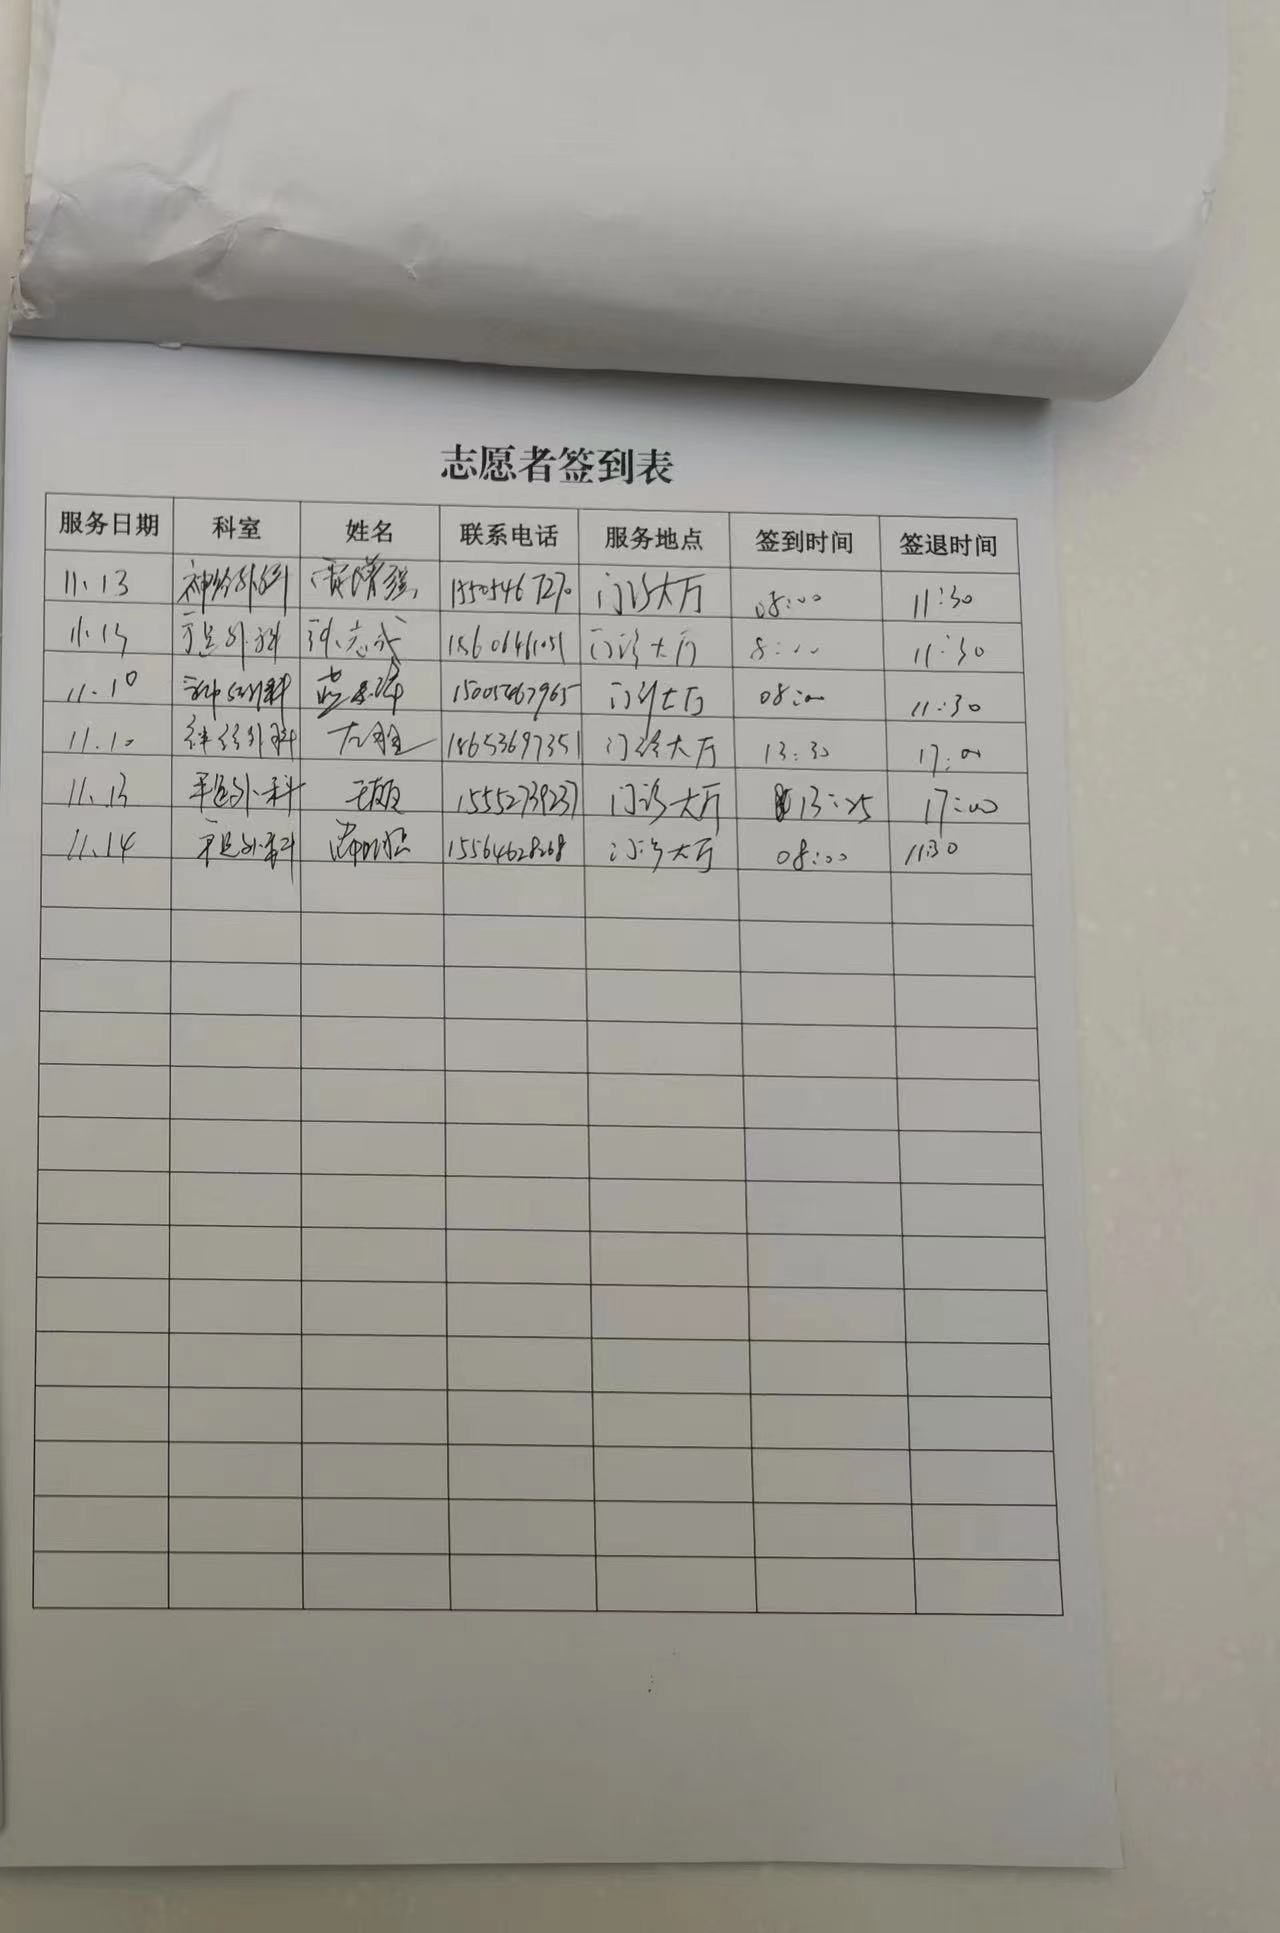 志愿者签到表
服务日期 科室 姓名 联系电话 服务地点 签到时间 签退时间
11.13 神经外科 门诊大厅 08:00 11:30
11.13 手足外科 孙志成 门诊大厅 8:00 11:30
11.10 神经外科 15005467965 门诊大厅 08:00 11:30
11.10 神经外科 18653697351 门诊大厅 13:30 17:00
11.13 手足外科 15552739237 门诊大厅 13:25 17:00
11.14 手足外科 15564628268 门诊大厅 08:00 11:30